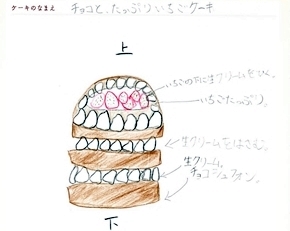 ケーキのなまえ チョコと、たっぷりいちごケーキ
上
いちごの下に生クリームをひく。
いちごたっぷり。
生クリームをはさむ。
生クリーム。
チョコシフォン。
下